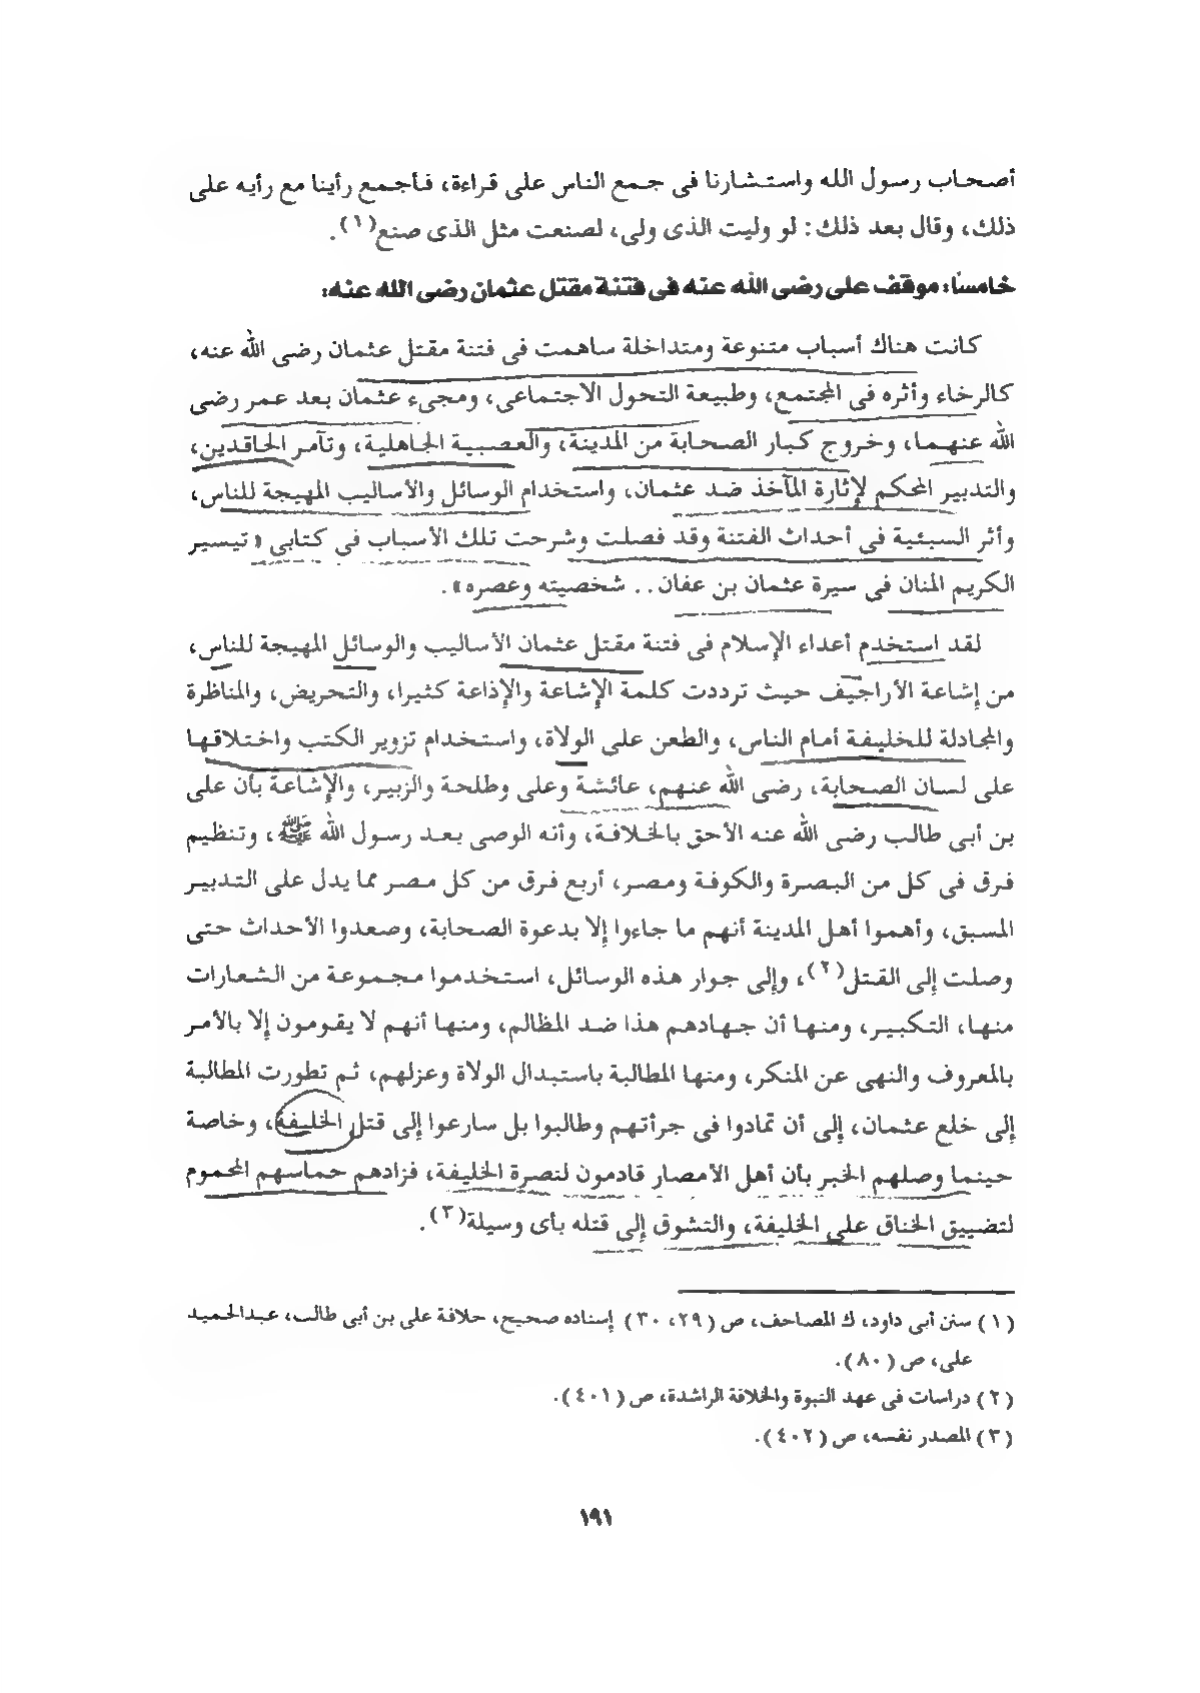 أصحاب رسول الله واستشارنا فى جمع الناس على قراءة، فأجمع رأينا مع رأيه على
ذلك، وقال بعد ذلك: لو وليت الذى ولى، لصنعت مثل الذى صنع(١).
خامسًا: موقف على رضى الله عنه فى فتنة مقتل عثمان رضى الله عنه:
كانت هناك أسباب متنوعة ومتداخلة ساهمت فى فتنة مقتل عثمان رضى الله عنه،
كالرخاء وأثره فى المجتمع، وطبيعة التحول الاجتماعى، ومجىء عثمان بعد عمر رضى
الله عنهما، وخروج كبار الصحابة من المدينة، والعصبية الجاهلية، وتآمر الحاقدين،
والتدبير المحكم لإثارة المآخذ ضد عثمان، واستخدام الوسائل والأساليب المهيجة للناس،
وأثر السبئية فى أحداث الفتنة وقد فصلت وشرحت تلك الأسباب فى كتابى « تيسير
الكريم المنان فى سيرة عثمان بن عفان.. شخصيته وعصره».
لقد استخدم أعداء الإسلام فى فتنة مقتل عثمان الأساليب والوسائل المهيجة للناس،
من إشاعة الأراجيف حيث ترددت كلمة الإشاعة والإذاعة كثيرا، والتحريض، والمناظرة
والمجادلة للخليفة أمام الناس، والطعن على الولاة، واستخدام تزوير الكتب واختلاقها
على لسان الصحابة، رضى الله عنهم، عائشة وعلى وطلحة والزبير، والإشاعة بأن على
بن أبى طالب رضى الله عنه الأحق بالخلافة، وأنه الوصى بعد رسول الله ﷺ، وتنظيم
فرق فى كل من البصرة والكوفة ومصر، أربع فرق من كل مصر مما يدل على التدبير
المسبق، وأهموا أهل المدينة أنهم ما جاءوا إلا بدعوة الصحابة، وصعدوا الأحداث حتى
وصلت إلى القتل(٢)، وإلى جوار هذه الوسائل، استخدموا مجموعة من الشعارات
منها، التكبير، ومنها أن جهادهم هذا ضد المظالم، ومنها أنهم لا يقومون إلا بالأمر
بالمعروف والنهى عن المنكر، ومنها المطالبة باستبدال الولاة وعزلهم، ثم تطورت المطالبة
إلى خلع عثمان، إلى أن تمادوا فى جرأتهم وطالبوا بل سارعوا إلى قتل الخليفة، وخاصة
حينما وصلهم الخبر بأن أهل الأمصار قادمون لنصرة الخليفة، فزادهم حماسهم المحموم
لتضييق الخناق على الخليفة، والتشوق إلى قتله بأى وسيلة(٣).
(١) سنن أبى داود، ك المصاحف، ص (٢٩، ٣٠) إسناده صحيح، خلافة على بن أبى طالب، عبدالحميد
على، ص (٨٠).
(٢) دراسات فى عهد النبوة والخلافة الراشدة، ص (٤٠١).
(٣) المصدر نفسه، ص (٤٠٢).
١٩١